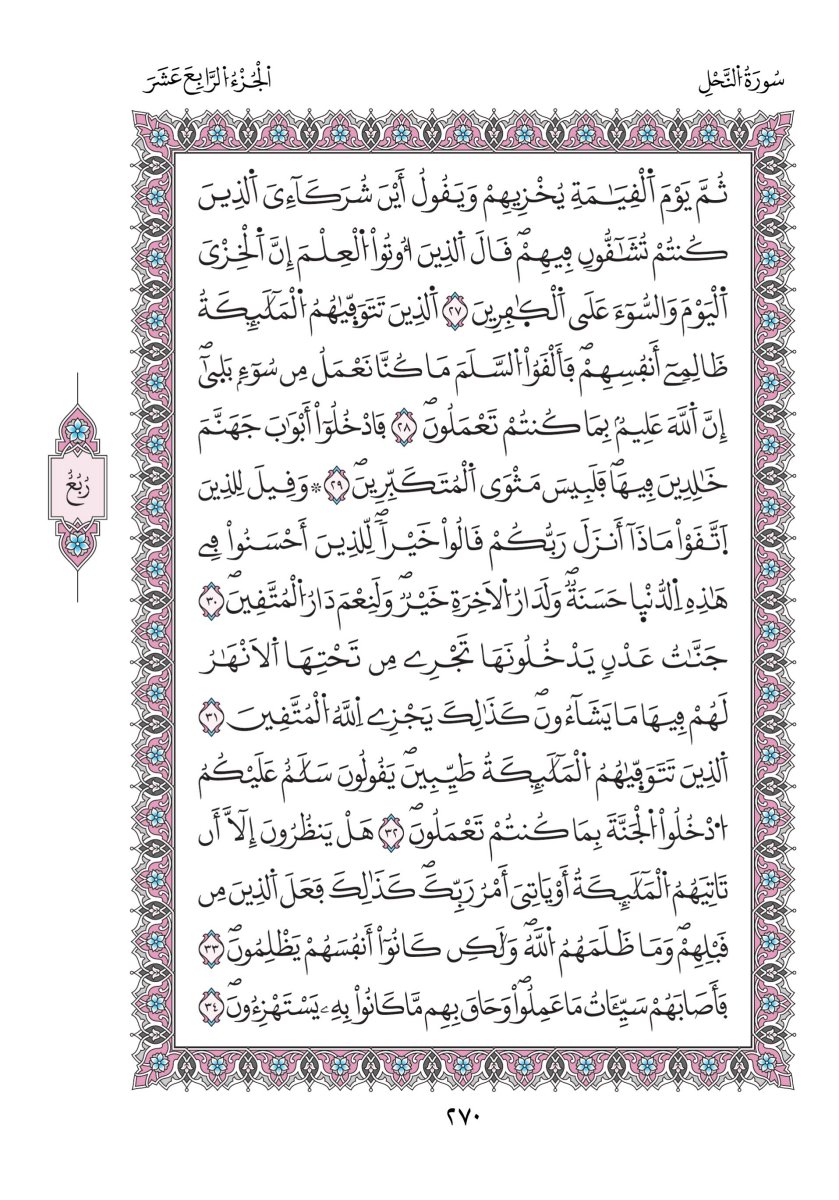 سُورَةُ النَّحْلِ
الْجُزْءُ الرَّابِعَ عَشَرَ
ثُمَّ يَوْمَ اَلْقِيَٰمَةِ يُخْزِيهِمْ وَيَقُولُ أَيْنَ شُرَكَآءِيَ اَلذِينَ
كُنتُمْ تُشَٰٓقُّونِ فِيهِمْۖ قَالَ اَلذِينَ أُوتُواْ اُلْعِلْمَ إِنَّ اَلْخِزْيَ
اَلْيَوْمَ وَالسُّوٓءَ عَلَى اَلْكٰ۪فِرِينَ ٢٧ اَلذِينَ تَتَوَفّ۪يٰهُمُ اُلْمَلَٰٓئِكَةُ
ظَالِمِےٓ أَنفُسِهِمْۖ فَأَلْقَوُاْ اُلسَّلَمَ مَا كُنَّا نَعْمَلُ مِن سُوٓءِۢ بَل۪ىٰٓۖ
إِنَّ اَللَّهَ عَلِيمُۢ بِمَا كُنتُمْ تَعْمَلُونَۖ ٢٨ فَادْخُلُوٓاْ أَبْوَٰبَ جَهَنَّمَ
خَٰلِدِينَ فِيهَاۖ فَلَبِيسَ مَثْوَى اَلْمُتَكَبِّرِينَۖ ٢٩ ۞ وَقِيلَ لِلذِينَ
اَ۪تَّقَوْاْ مَاذَآ أَنزَلَ رَبُّكُمْ قَالُواْ خَيْراٗۖ لِّلذِينَ أَحْسَنُواْ فِے
هَٰذِهِ اِلدُّنْي۪ا حَسَنَةٞۖ وَلَدَارُ اُلَاخِرَةِ خَيْرٞۖ وَلَنِعْمَ دَارُ اُلْمُتَّقِينَۖ ٣٠
جَنَّٰتُ عَدْنٖ يَدْخُلُونَهَا تَجْرِے مِن تَحْتِهَا اَلَانْهَٰرُ
لَهُمْ فِيهَا مَا يَشَآءُونَۖ كَذَٰلِكَ يَجْزِے اِللَّهُ اُلْمُتَّقِينَ ٣١
اَلذِينَ تَتَوَفّ۪يٰهُمُ اُلْمَلَٰٓئِكَةُ طَيِّبِينَۖ يَقُولُونَ سَلَٰمٌ عَلَيْكُمُ
اُ۟دْخُلُواْ اُلْجَنَّةَ بِمَا كُنتُمْ تَعْمَلُونَۖ ٣٢ هَلْ يَنظُرُونَ إِلَّآ أَن
تَاتِيَهُمُ اُلْمَلَٰٓئِكَةُ أَوْ يَاتِيَ أَمْرُ رَبِّكَۖ كَذَٰلِكَ فَعَلَ اَلذِينَ مِن
قَبْلِهِمْۖ وَمَا ظَلَمَهُمُ اُللَّهُۖ وَلَٰكِن كَانُوٓاْ أَنفُسَهُمْ يَظْلِمُونَۖ ٣٣
فَأَصَابَهُمْ سَيِّـَٔاتُ مَا عَمِلُواْۖ وَحَاقَ بِهِم مَّا كَانُواْ بِهِۦ يَسْتَهْزِءُونَۖ ٣٤
رُبُعُ
٢٧٠